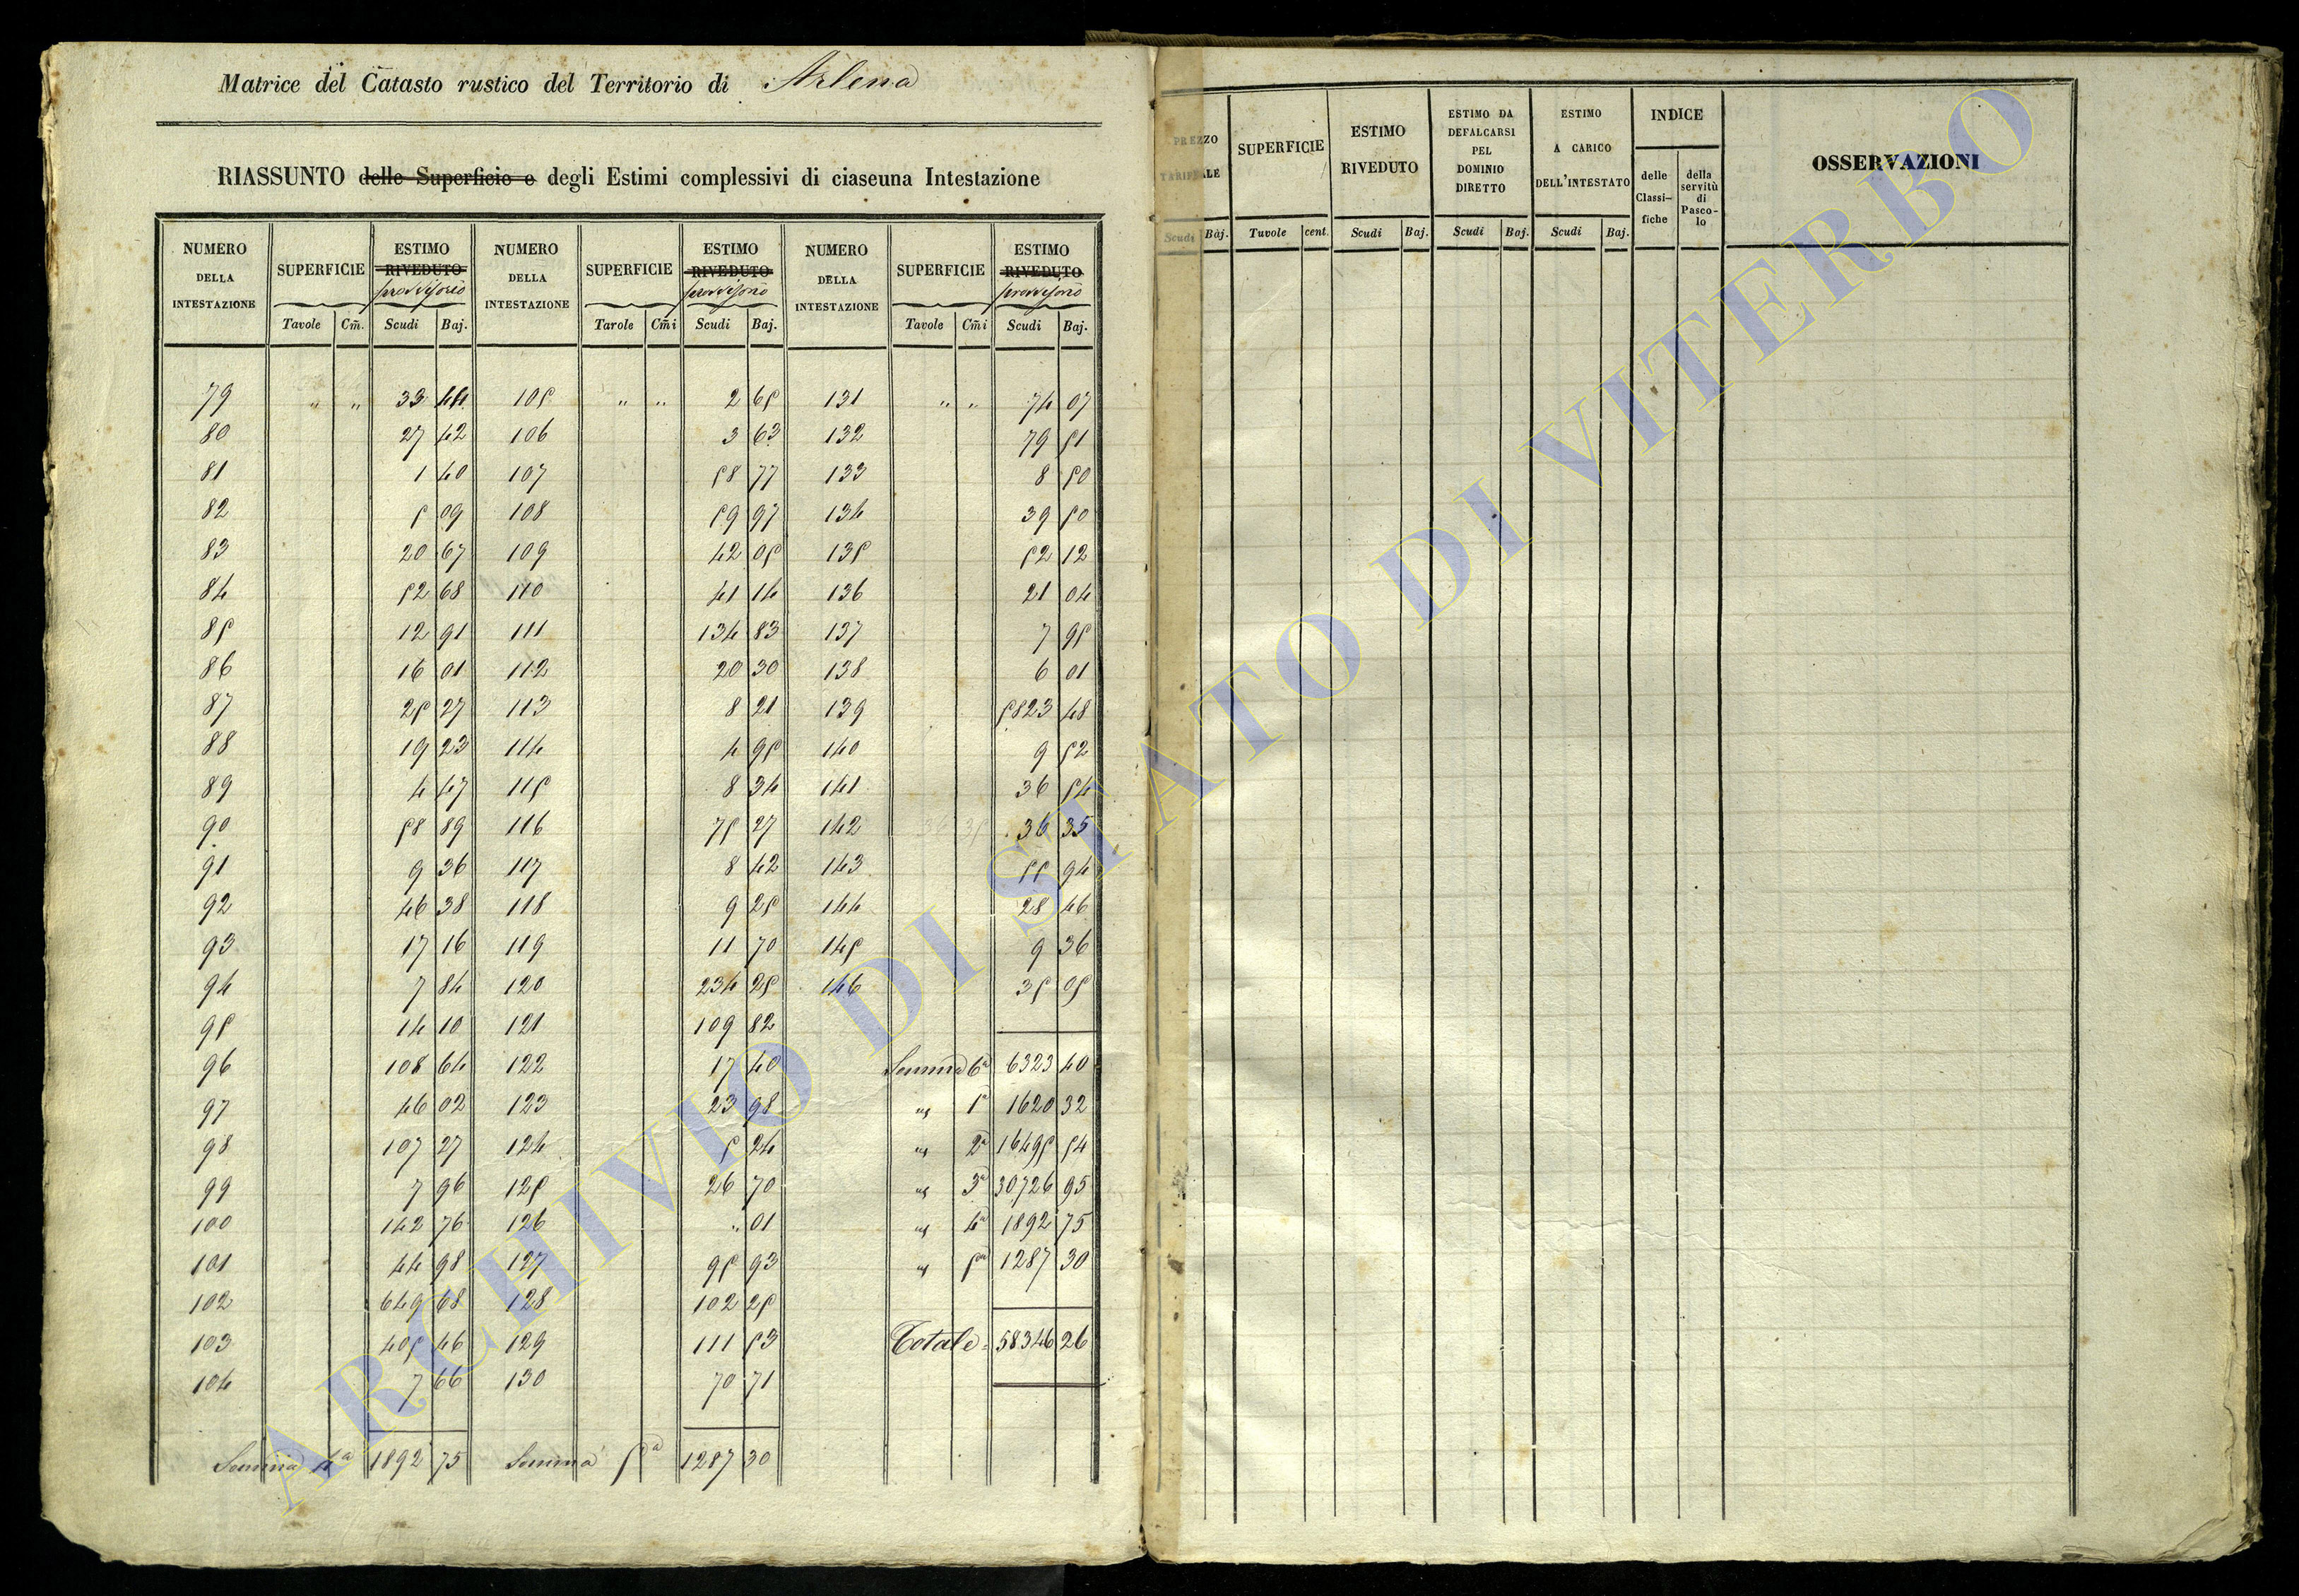 Matrice del Catasto rustico del Territorio di Arlena
RIASSUNTO delle Superficie e degli Estimi complessivi di ciascuna Intestazione
NUMERO DELLA INTESTAZIONE SUPERFICIE ESTIMO RIVEDUTO provvisorio NUMERO DELLA INTESTAZIONE SUPERFICIE ESTIMO RIVEDUTO provvisorio NUMERO DELLA INTESTAZIONE SUPERFICIE ESTIMO RIVEDUTO provvisorio
Tavole Cm̃. Scudi Baj. Tavole Cm̃i Scudi Baj. Tavole Cm̃i Scudi Baj.
79 " " 33 44 105 " " 2 65 131 " " 74 07
80 27 42 106 3 63 132 79 51
81 1 40 107 58 77 133 8 50
82 5 09 108 59 97 134 39 50
83 20 67 109 42 05 135 52 12
84 52 68 110 41 14 136 21 04
85 12 91 111 134 83 137 7 95
86 16 01 112 20 30 138 6 01
87 25 27 113 8 21 139 5823 48
88 19 23 114 4 95 140 9 52
89 4 47 115 8 34 141 36 54
90 58 89 116 75 27 142 36 35 36 35
91 9 36 117 8 42 143 55 94
92 46 38 118 9 25 144 28 46
93 17 16 119 11 70 145 9 36
94 7 84 120 234 25 146 35 05
95 14 10 121 109 82
96 108 64 122 17 40 Somma 6a 6323 40
97 46 02 123 23 98 " 1a 1620 32
98 107 27 124 5 24 " 2a 16495 54
99 7 96 125 26 70 " 3a 30726 95
100 142 76 126 " 01 " 4a 1892 75
101 44 98 127 95 93 " 5a 1287 30
102 649 68 128 102 25
103 405 46 129 111 53 Totale = 58346 26
104 7 66 130 70 71
Somma 4a 1892 75 Somma 5a 1287 30
PREZZO TARIFFALE SUPERFICIE ESTIMO RIVEDUTO ESTIMO DA DEFALCARSI PEL DOMINIO DIRETTO ESTIMO A CARICO DELL'INTESTATO INDICE OSSERVAZIONI
delle Classifiche della servitù di Pascolo
Scudi Baj. Tavole cent. Scudi Baj. Scudi Baj. Scudi Baj.
ARCHIVIO DI STATO DI VITERBO